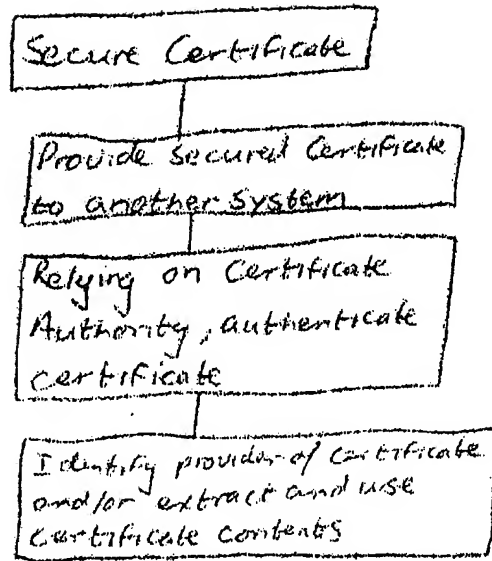 Secure Certificate
Provide secured Certificate
to another system
Relying on Certificate
Authority, authenticate
certificate
Identify provider of certificate
and/or extract and use
certificate contents